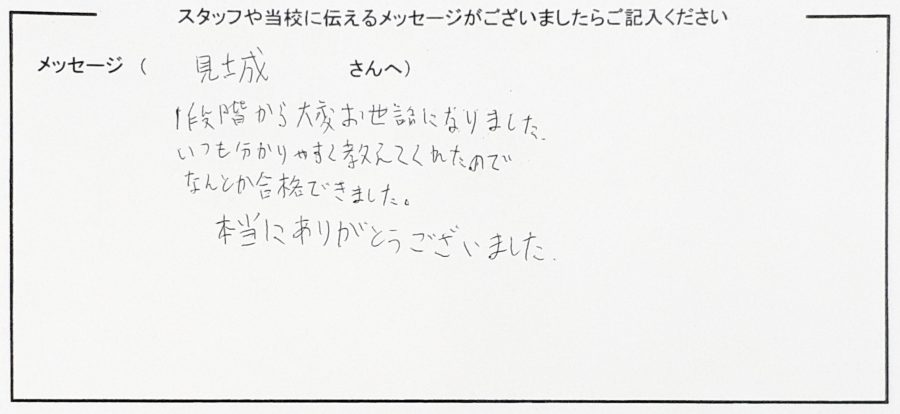 スタッフや当校に伝えるメッセージがございましたらご記入ください
メッセージ ( 見城 さんへ)
1段階から大変お世話になりました.
いつも分かりやすく教えてくれたので
なんとか合格できました。
本当にありがとうございました.